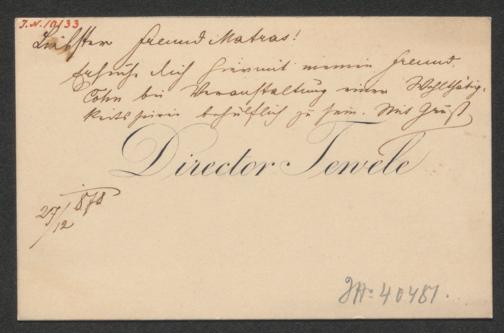 J.N. 10/33
Liebster Freund Matras!
Ersuche dich hiermit meinem Freund
Cohn bei Veranstaltung einer Wohlthätig-
keits behülflich zu sein. Mit Gruß
Director Tewele
27/12 1878
JN: 40451.